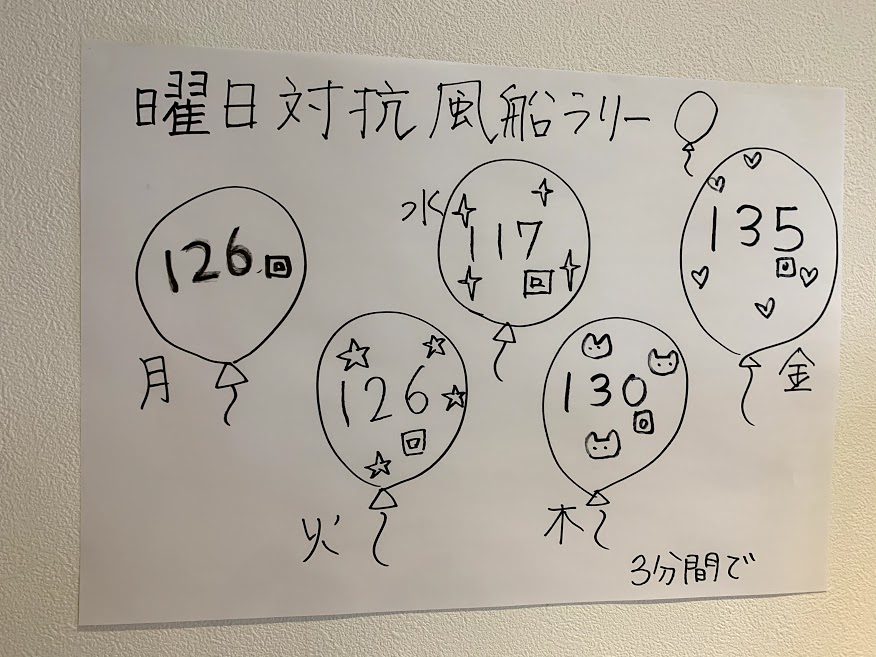 曜日対抗風船ラリー
月
126回
火
126回
水
117回
木
130回
金
135回
3分間で